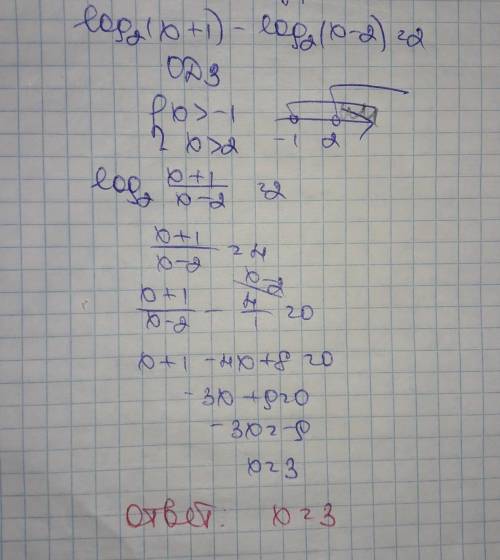 log₂(x+1) - log₂(x-2) = 2
ОДЗ
{ x > -1
{ x > 2
-1 2
log₂ (x+1)/(x-2) = 2
(x+1)/(x-2) = 4
x-2
(x+1)/(x-2) - 4/1 = 0
x+1 - 4x+8 = 0
-3x+9=0
-3x=-9
x=3
Ответ: x=3